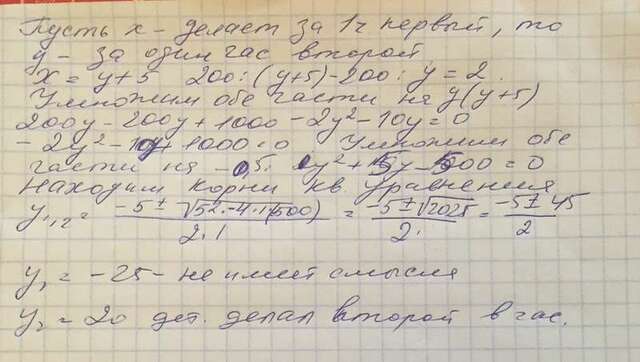 Пусть x - делает за 1ч первый, то
y - за один час второй
x = y+5 200:(y+5)-200:y=2.
Умножим обе части на y(y+5)
200y-200y+1000-2y²-10y=0
-2y²-10y+1000=0 Умножим обе
части на -0,5. y²+5y-500=0
Находим корни кв. уравнения
y₁,₂ = (-5±√(5²-4·1(500)))/(2·1) = (-5±√2025)/2· = (-5±45)/2
y₁ = -25- не имеет смысла
y₂ = 20 дет. делал второй в час.